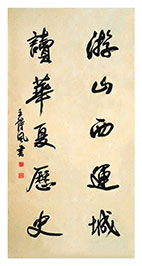 游山西運城
讀華夏歷史